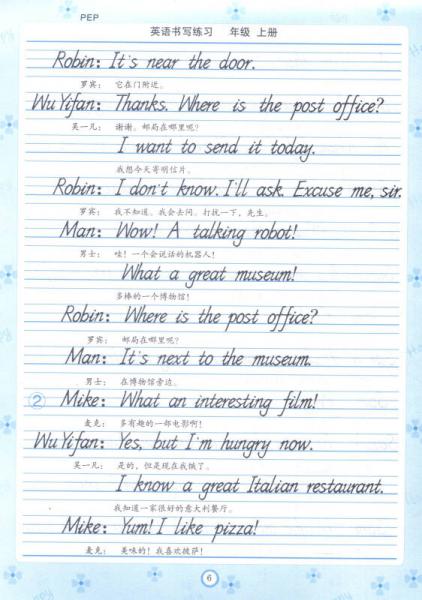 PEP
英语书写练习 年级 上册
Robin: It's near the door.
罗宾： 它在门附近。
Wu Yifan: Thanks. Where is the post office?
吴一凡： 谢谢。邮局在哪里呢？
I want to send it today.
我想今天寄明信片。
Robin: I don't know. I'll ask. Excuse me, sir.
罗宾： 我不知道。我会去问。打扰一下，先生。
Man: Wow! A talking robot!
男士： 哇！一个会说话的机器人！
What a great museum!
多棒的一个博物馆！
Robin: Where is the post office?
罗宾： 邮局在哪里呢？
Man: It's next to the museum.
男士： 在博物馆旁边。
② Mike: What an interesting film!
麦克： 多有趣的一部电影啊！
Wu Yifan: Yes, but I'm hungry now.
吴一凡： 是的，但是现在我饿了。
I know a great Italian restaurant.
我知道一家很好的意大利餐厅。
Mike: Yum! I like pizza!
麦克： 美味的！我喜欢披萨！
6